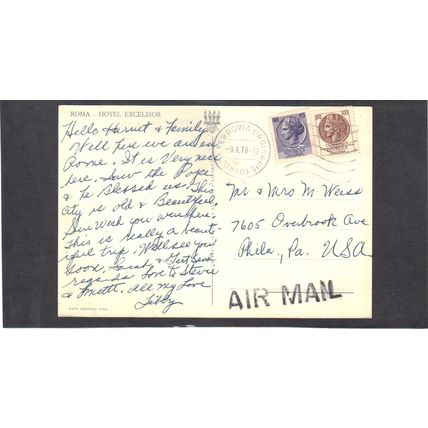 ROMA - HOTEL EXCELSIOR
Hello Harriet & Family
Well here we are in
Rome. It is Very nice
here, Saw the Pope
& he Blessed us. This
City is old & Beautiful,
Sure Wish you were here.
This is really a beaut-
iful trip. Will see you
Soon, &
regards Love to Stevie
& all my Love
Libby
FERROVIA
-9.4.70-12
Mr & Mrs M Weiss
7605 Overbrook Ave
Phila, Pa. USA
AIR MAIL